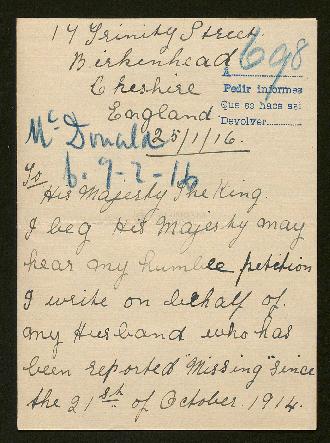 17 Trinity Street
Birkenhead
Cheshire
England
25/1/16.
698
A
Pedir informes
Que se hace sei
Devolver
Mc Donald
6. 9-2-16
To
His Majesty The King
I beg His Majesty may
hear my humble petition
I write on behalf of
my Husband who has
been reported "Missing" since
the 21st of October 1914.